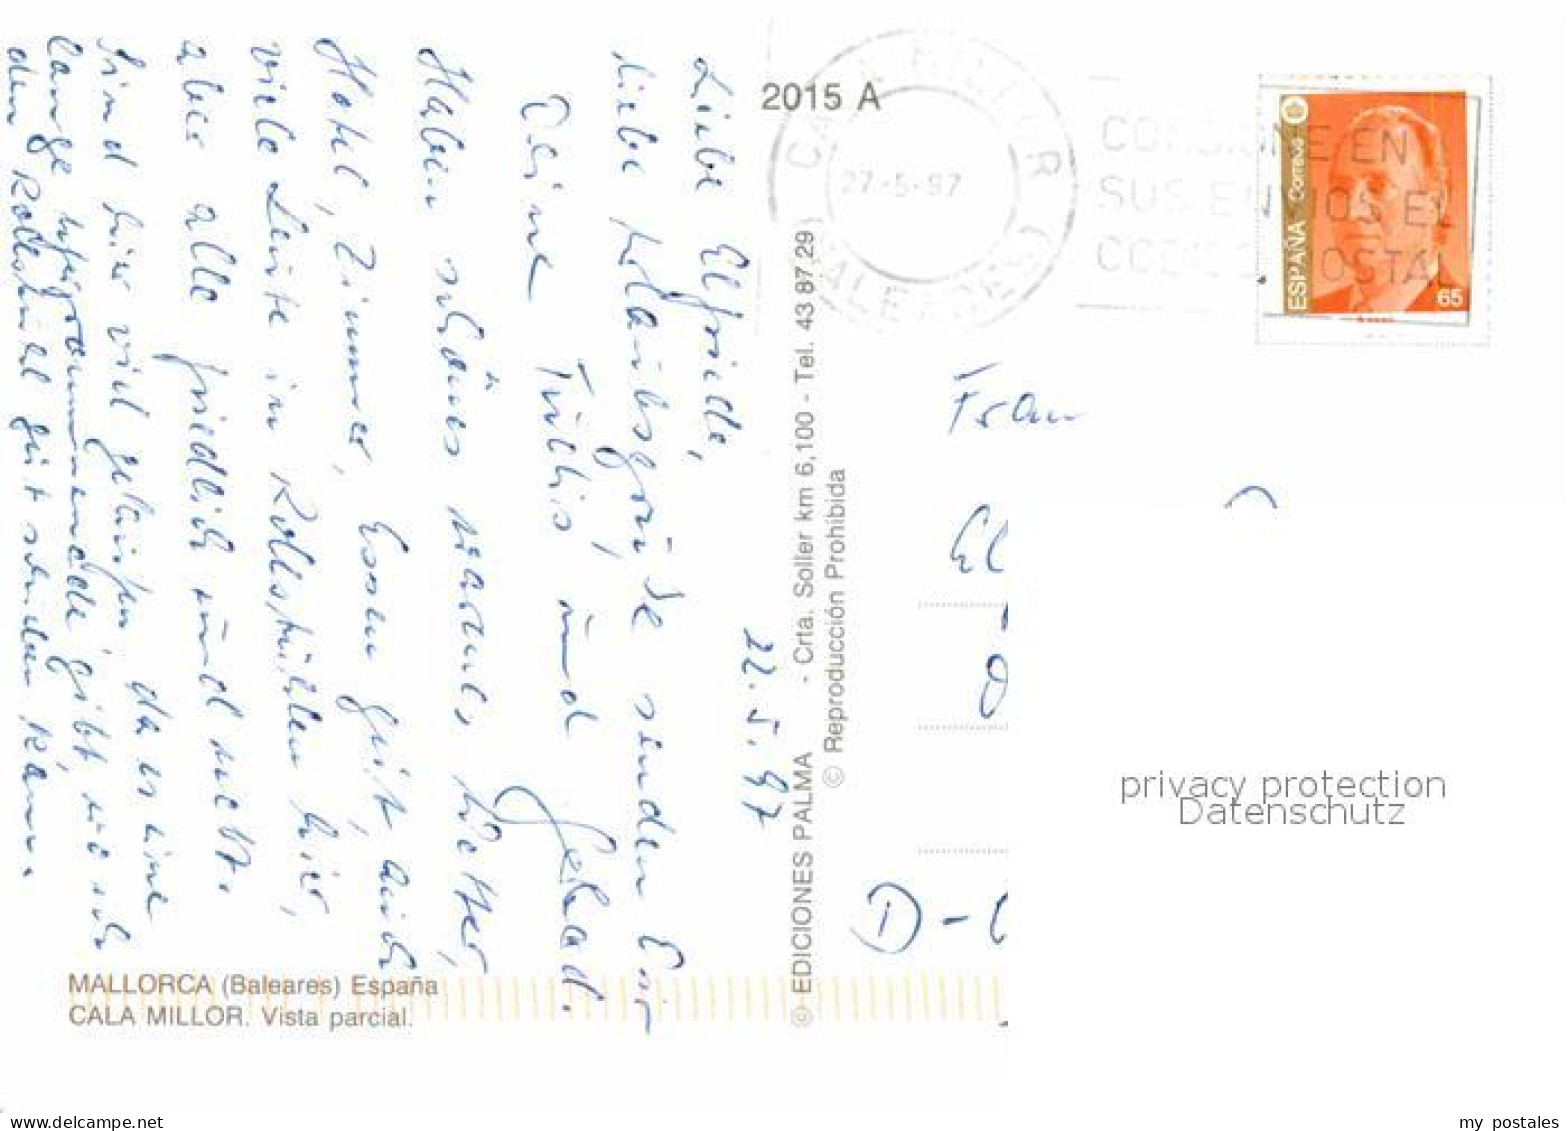 2015 A
CALA MILLOR
27-5-97
BALEARES
CONSIGNE EN
SUS ENVIOS EL
CODIGO POSTAL
ESPAÑA Correos
65
22.5.97
Liebe Elfriede,
liebe Urlaubsgrüße senden Dir
Deine und Gerhard.
Haben schönes warmes Wetter,
Hotel, Zimmer, Essen gut, auch
viele Leute in Rollstühlen hier,
aber alle friedlich und nett.
Sind hier viel gelaufen da es eine
lange Uferpromenade gibt wo sich
den Rollstuhl gut schieben kann.
Frau
El
D-
© EDICIONES PALMA - Crta. Soller km 6,100 - Tel. 43 87 29
© Reproducción Prohibida
MALLORCA (Baleares) España
CALA MILLOR. Vista parcial.
privacy protection
Datenschutz
delcampe.net
my_postales